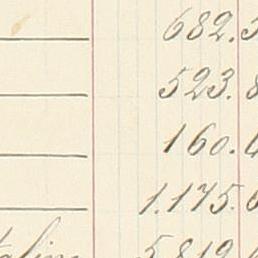 682.
523.
160.
1.175.
5.819